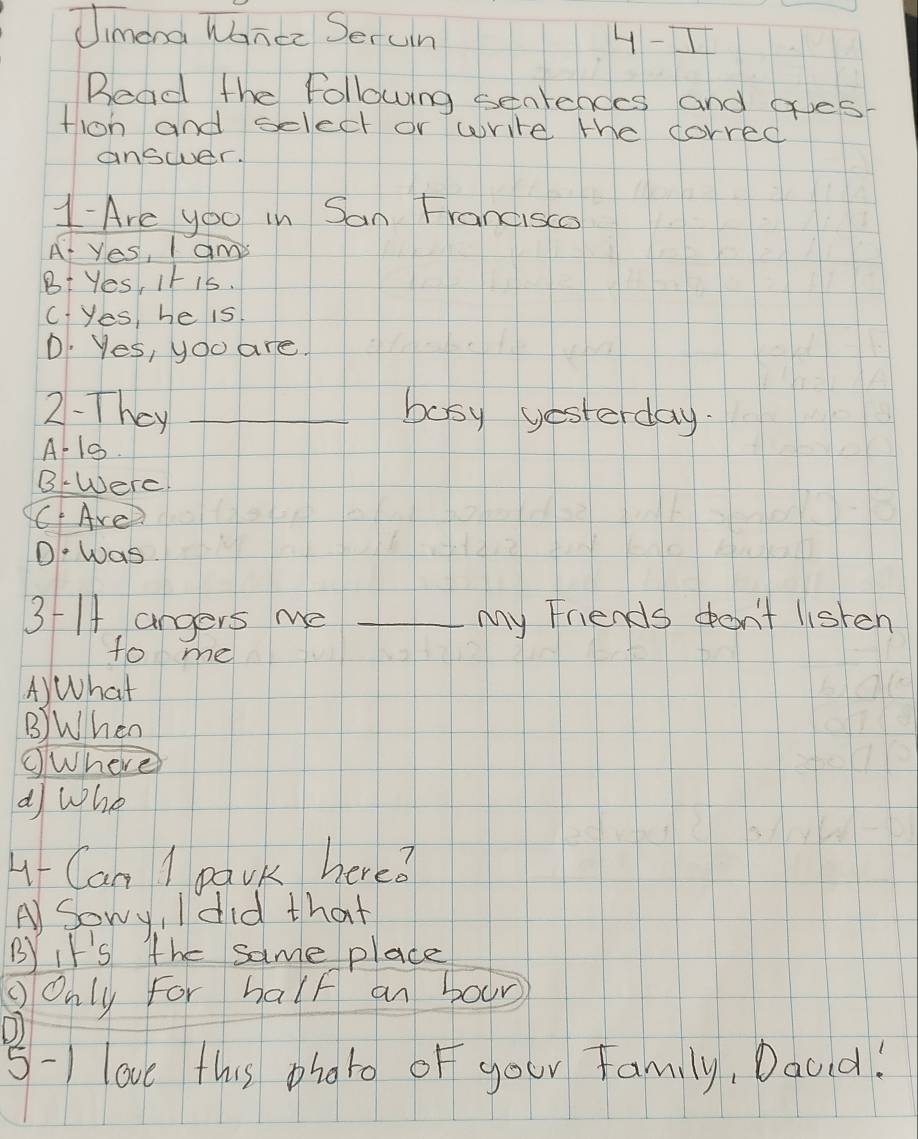 Jimena Wañez Servin 4-I
Read the following sentences and ques-
tion and select or write the correc
answer.
1-Are you in San Francisco
A- Yes, I am
B- Yes, it is.
C- Yes, he is.
D. Yes, you are.
2-They ______ busy yesterday.
A- Is.
B- Were.
C- Are
D- Was.
3-It angers me ____ my Friends don't listen
to me
A) What
B) When
C) Where
d) Who
4- Can I park here?
A) Sorry, I did that
B) it's the same place
C) Only For half an hour
D)
5-I love this photo of your Family, David!